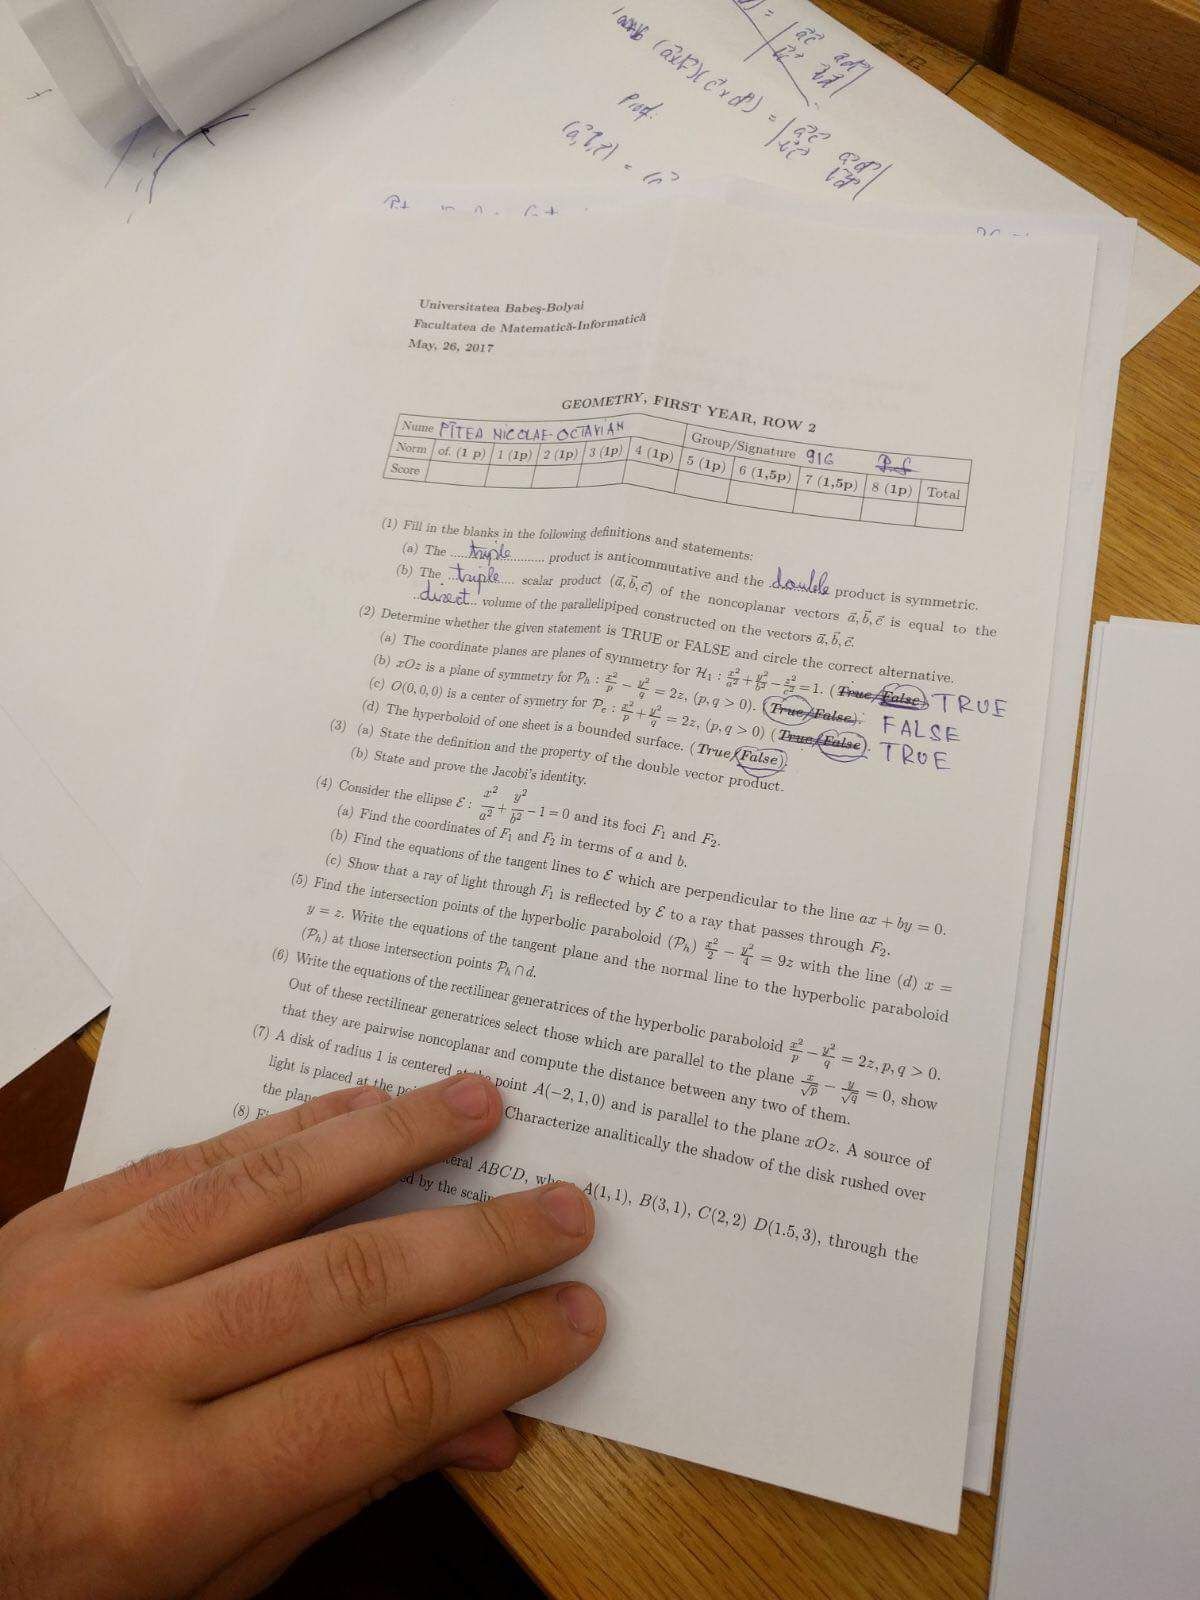 (a⃗×b⃗)(c⃗×d⃗) = | a⃗c⃗ a⃗d⃗
b⃗c⃗ b⃗d⃗ |
Proof.
Universitatea Babeş-Bolyai
Facultatea de Matematică-Informatică
May, 26, 2017
GEOMETRY, FIRST YEAR, ROW 2
Nume PÎTEA NICOLAE-OCTAVIAN Group/Signature 916
Norm of. (1 p) 1 (1p) 2 (1p) 3 (1p) 4 (1p) 5 (1p) 6 (1,5p) 7 (1,5p) 8 (1p) Total
Score
(1) Fill in the blanks in the following definitions and statements:
(a) The ....triple.... product is anticommutative and the .double product is symmetric.
(b) The ..triple.... scalar product (a⃗, b⃗, c⃗) of the noncoplanar vectors a⃗, b⃗, c⃗ is equal to the
..direct.. volume of the parallelipiped constructed on the vectors a⃗, b⃗, c⃗.
(2) Determine whether the given statement is TRUE or FALSE and circle the correct alternative.
(a) The coordinate planes are planes of symmetry for H₁ : x²/a² + y²/b² − z²/c² = 1. (True/False) TRUE
(b) xOz is a plane of symmetry for Pₕ : x²/p − y²/q = 2z, (p, q > 0). (True/False). FALSE
(c) O(0, 0, 0) is a center of symetry for Pₑ : x²/p + y²/q = 2z, (p, q > 0) (True/False). TRUE
(d) The hyperboloid of one sheet is a bounded surface. (True/False).
(3) (a) State the definition and the property of the double vector product.
(b) State and prove the Jacobi's identity.
(4) Consider the ellipse E : x²/a² + y²/b² − 1 = 0 and its foci F₁ and F₂.
(a) Find the coordinates of F₁ and F₂ in terms of a and b.
(b) Find the equations of the tangent lines to E which are perpendicular to the line ax + by = 0.
(c) Show that a ray of light through F₁ is reflected by E to a ray that passes through F₂.
(5) Find the intersection points of the hyperbolic paraboloid (Pₕ) x²/2 − y²/4 = 9z with the line (d) x =
y = z. Write the equations of the tangent plane and the normal line to the hyperbolic paraboloid
(Pₕ) at those intersection points Pₕ ∩ d.
(6) Write the equations of the rectilinear generatrices of the hyperbolic paraboloid x²/p − y²/q = 2z, p, q > 0.
Out of these rectilinear generatrices select those which are parallel to the plane x/√p − y/√q = 0, show
that they are pairwise noncoplanar and compute the distance between any two of them.
(7) A disk of radius 1 is centered at the point A(−2, 1, 0) and is parallel to the plane xOz. A source of
light is placed at the Characterize analitically the shadow of the disk rushed over
the plane
(8) ABCD, where A(1, 1), B(3, 1), C(2, 2) D(1.5, 3), through the
by the